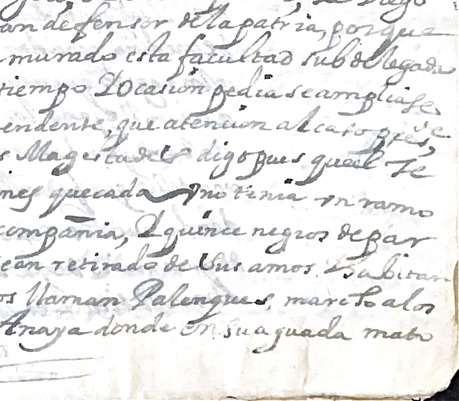 an defensor de la patria, porque
murado esta facultad subdelegada
tiempo Docasion pedia se ampliase
endente, que atencion al caso pres,
s Magestades digo pues que el
ines que cada uno tenia un ramo
compañia, D quince negros de par
ean retirado de sus amos. habitan
os llaman Palenques, marcho alos
Anaya donde en su aguada mato